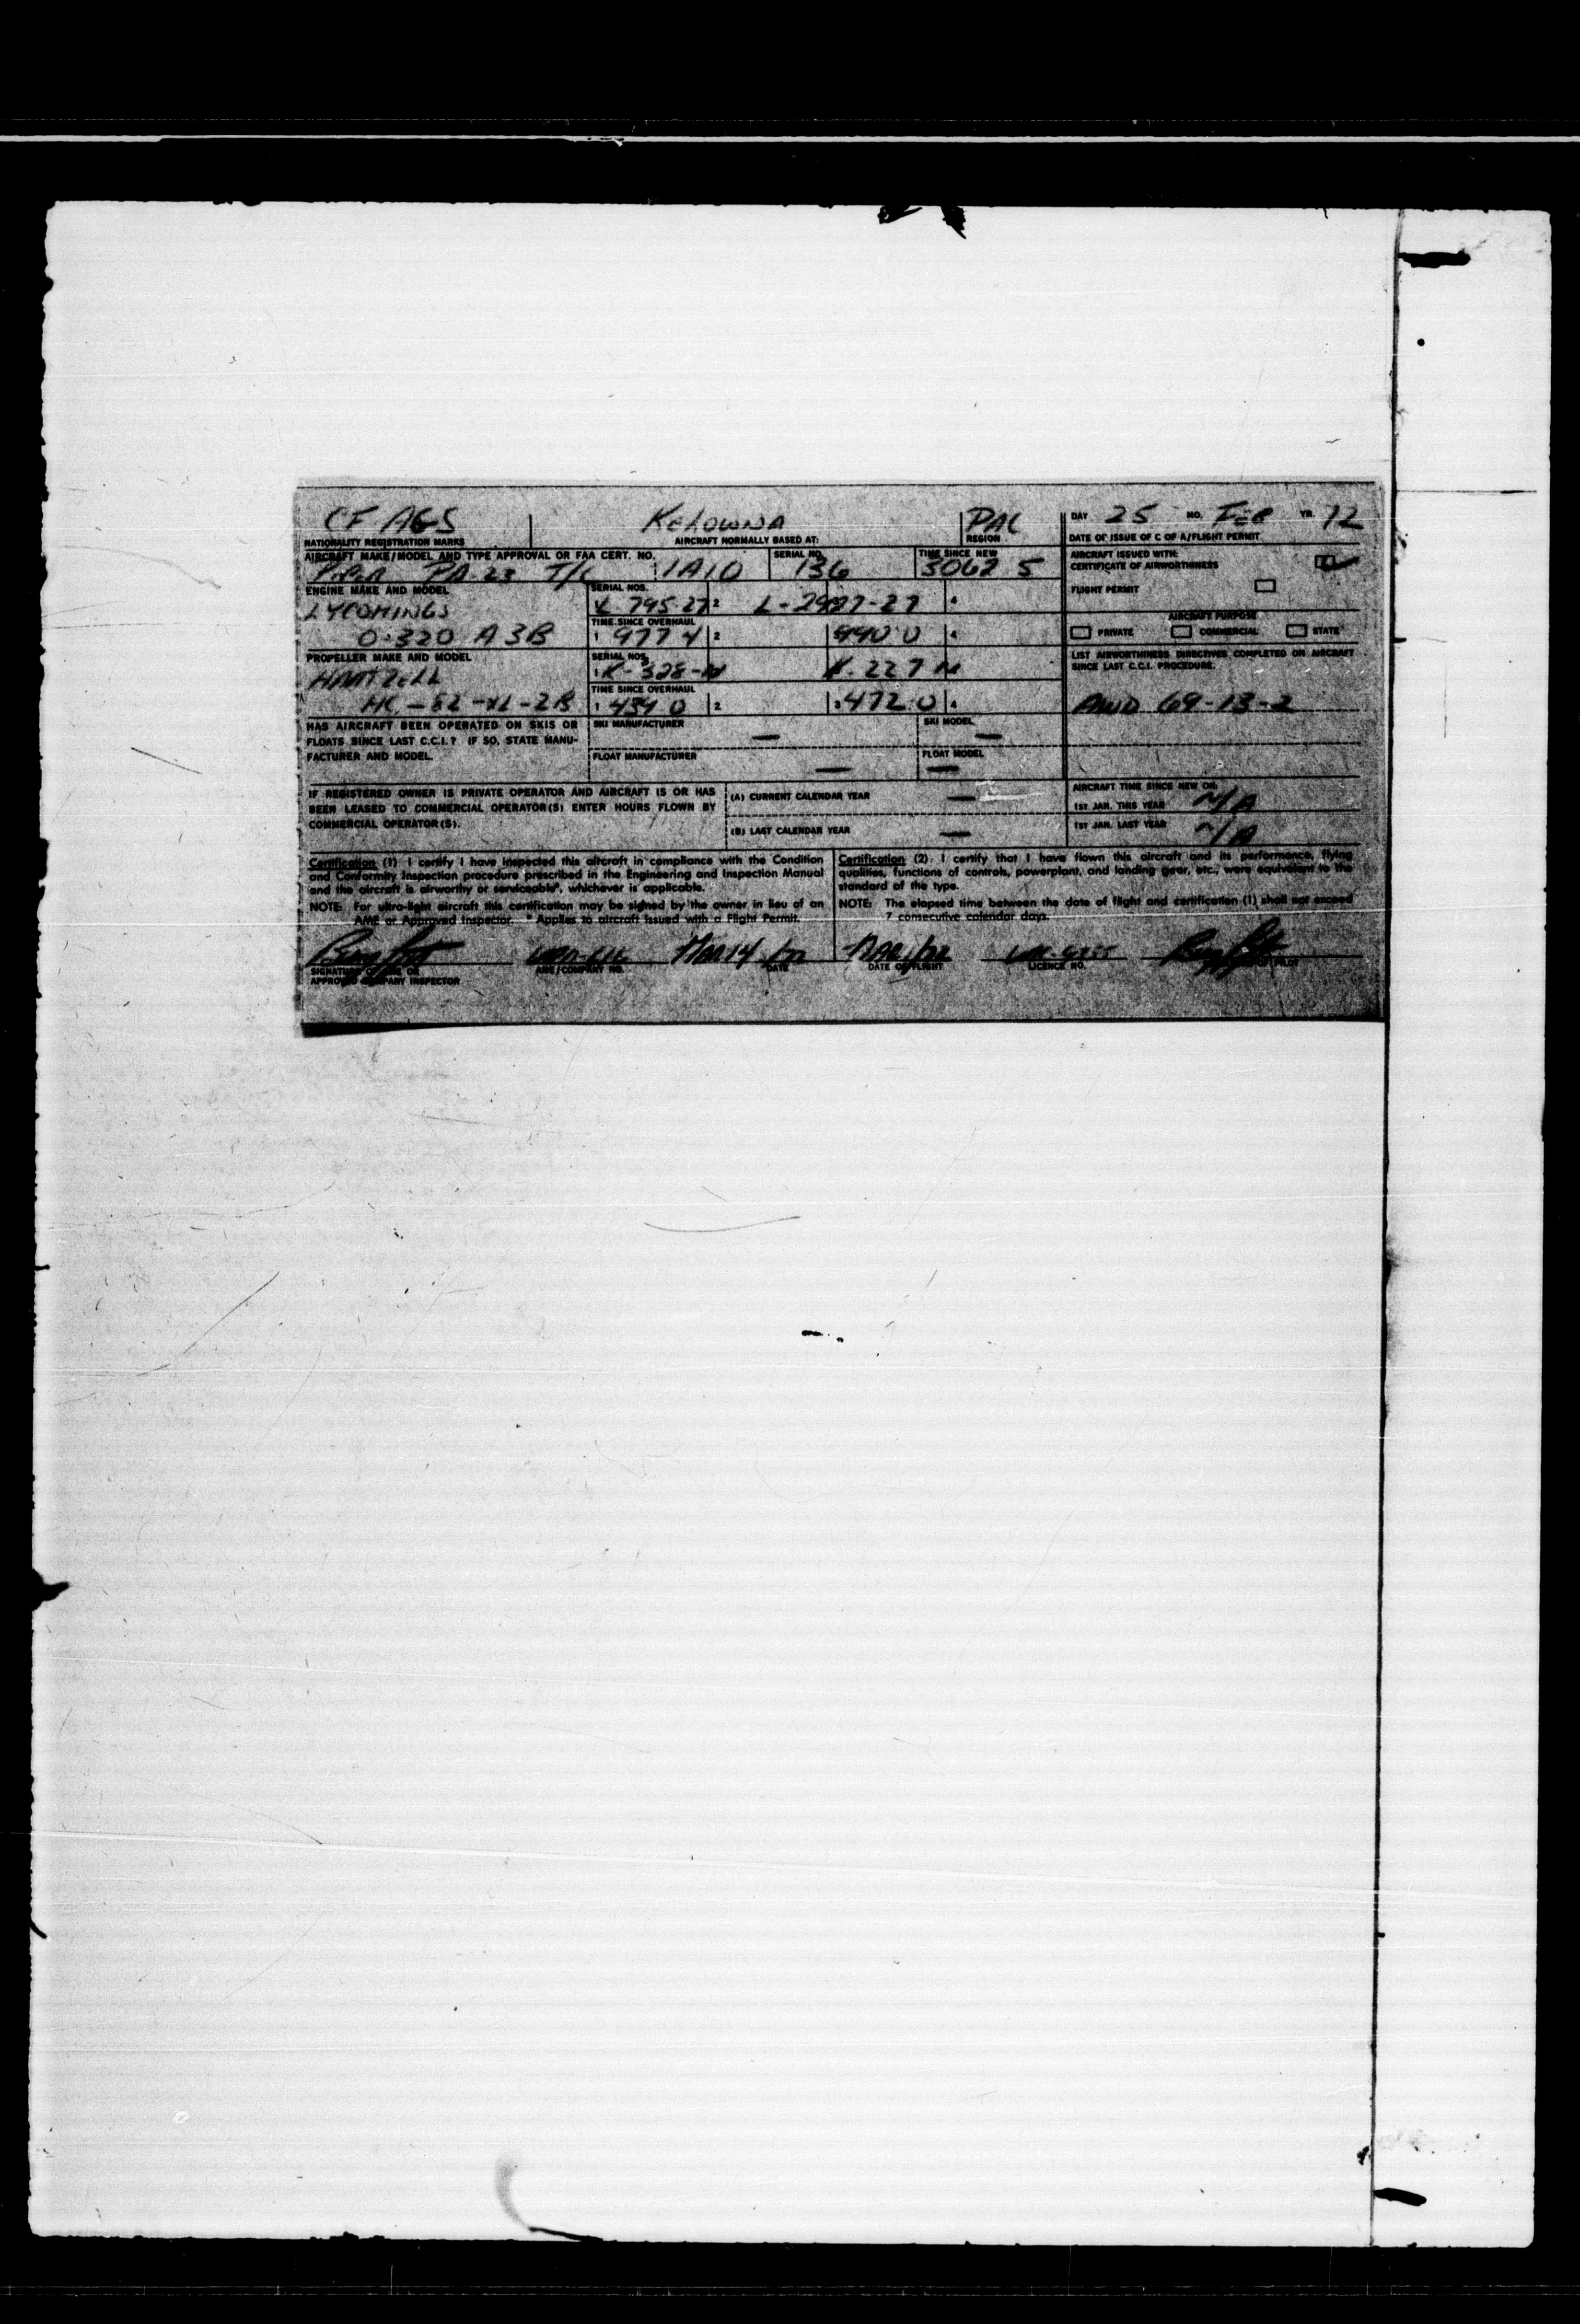 CF AGS KELOWNA PAC DAY 25 MO. FEB YR. 72
NATIONALITY REGISTRATION MARKS AIRCRAFT NORMALLY BASED AT: REGION DATE OF ISSUE OF C OF A/FLIGHT PERMIT
AIRCRAFT MAKE/MODEL AND TYPE APPROVAL OR FAA CERT. NO. SERIAL NO. TIME SINCE NEW
PIPER PA-23 T/C 1A10 136 3062 5
AIRCRAFT ISSUED WITH:
CERTIFICATE OF AIRWORTHINESS
FLIGHT PERMIT
ENGINE MAKE AND MODEL SERIAL NOS.
LYCOMINGS L 795-27 2 L-2927-27 4
O-320 A3B
TIME SINCE OVERHAUL
1 977 4 2 990 0 4
AIRCRAFT PURPOSE
PRIVATE COMMERCIAL STATE
PROPELLER MAKE AND MODEL SERIAL NOS.
HARTZELL 1 K-328-N K-227 N
HC-82-XL-2B
TIME SINCE OVERHAUL
1 434 0 2 3 472 0 4
LIST AIRWORTHINESS DIRECTIVES COMPLETED ON AIRCRAFT
SINCE LAST C.C.I. PROCEDURE.
AWD 69-13-2
HAS AIRCRAFT BEEN OPERATED ON SKIS OR
FLOATS SINCE LAST C.C.I.? IF SO, STATE MANU-
FACTURER AND MODEL.
SKI MANUFACTURER — SKI MODEL —
FLOAT MANUFACTURER — FLOAT MODEL —
IF REGISTERED OWNER IS PRIVATE OPERATOR AND AIRCRAFT IS OR HAS
BEEN LEASED TO COMMERCIAL OPERATOR(S) ENTER HOURS FLOWN BY
COMMERCIAL OPERATOR(S).
(A) CURRENT CALENDAR YEAR —
(B) LAST CALENDAR YEAR —
AIRCRAFT TIME SINCE NEW ON:
1ST JAN. THIS YEAR N/A
1ST JAN. LAST YEAR N/A
Certification (1) I certify I have inspected this aircraft in compliance with the Condition
and Conformity Inspection procedure prescribed in the Engineering and Inspection Manual
and the aircraft is airworthy or serviceable*, whichever is applicable.
NOTE: For ultra-light aircraft this certification may be signed by the owner in lieu of an
AME or Approved Inspector. * Applies to aircraft issued with a Flight Permit.
Certification (2) I certify that I have flown this aircraft and its performance, flying
qualities, functions of controls, powerplant, and landing gear, etc., were equivalent to the
standard of the type.
NOTE: The elapsed time between the date of flight and certification (1) shall not exceed
7 consecutive calendar days.
MAR 14/72
SIGNATURE OF AME OR AME/COMPANY NO. DATE DATE OF FLIGHT LICENCE NO. PILOT
APPROVED COMPANY INSPECTOR